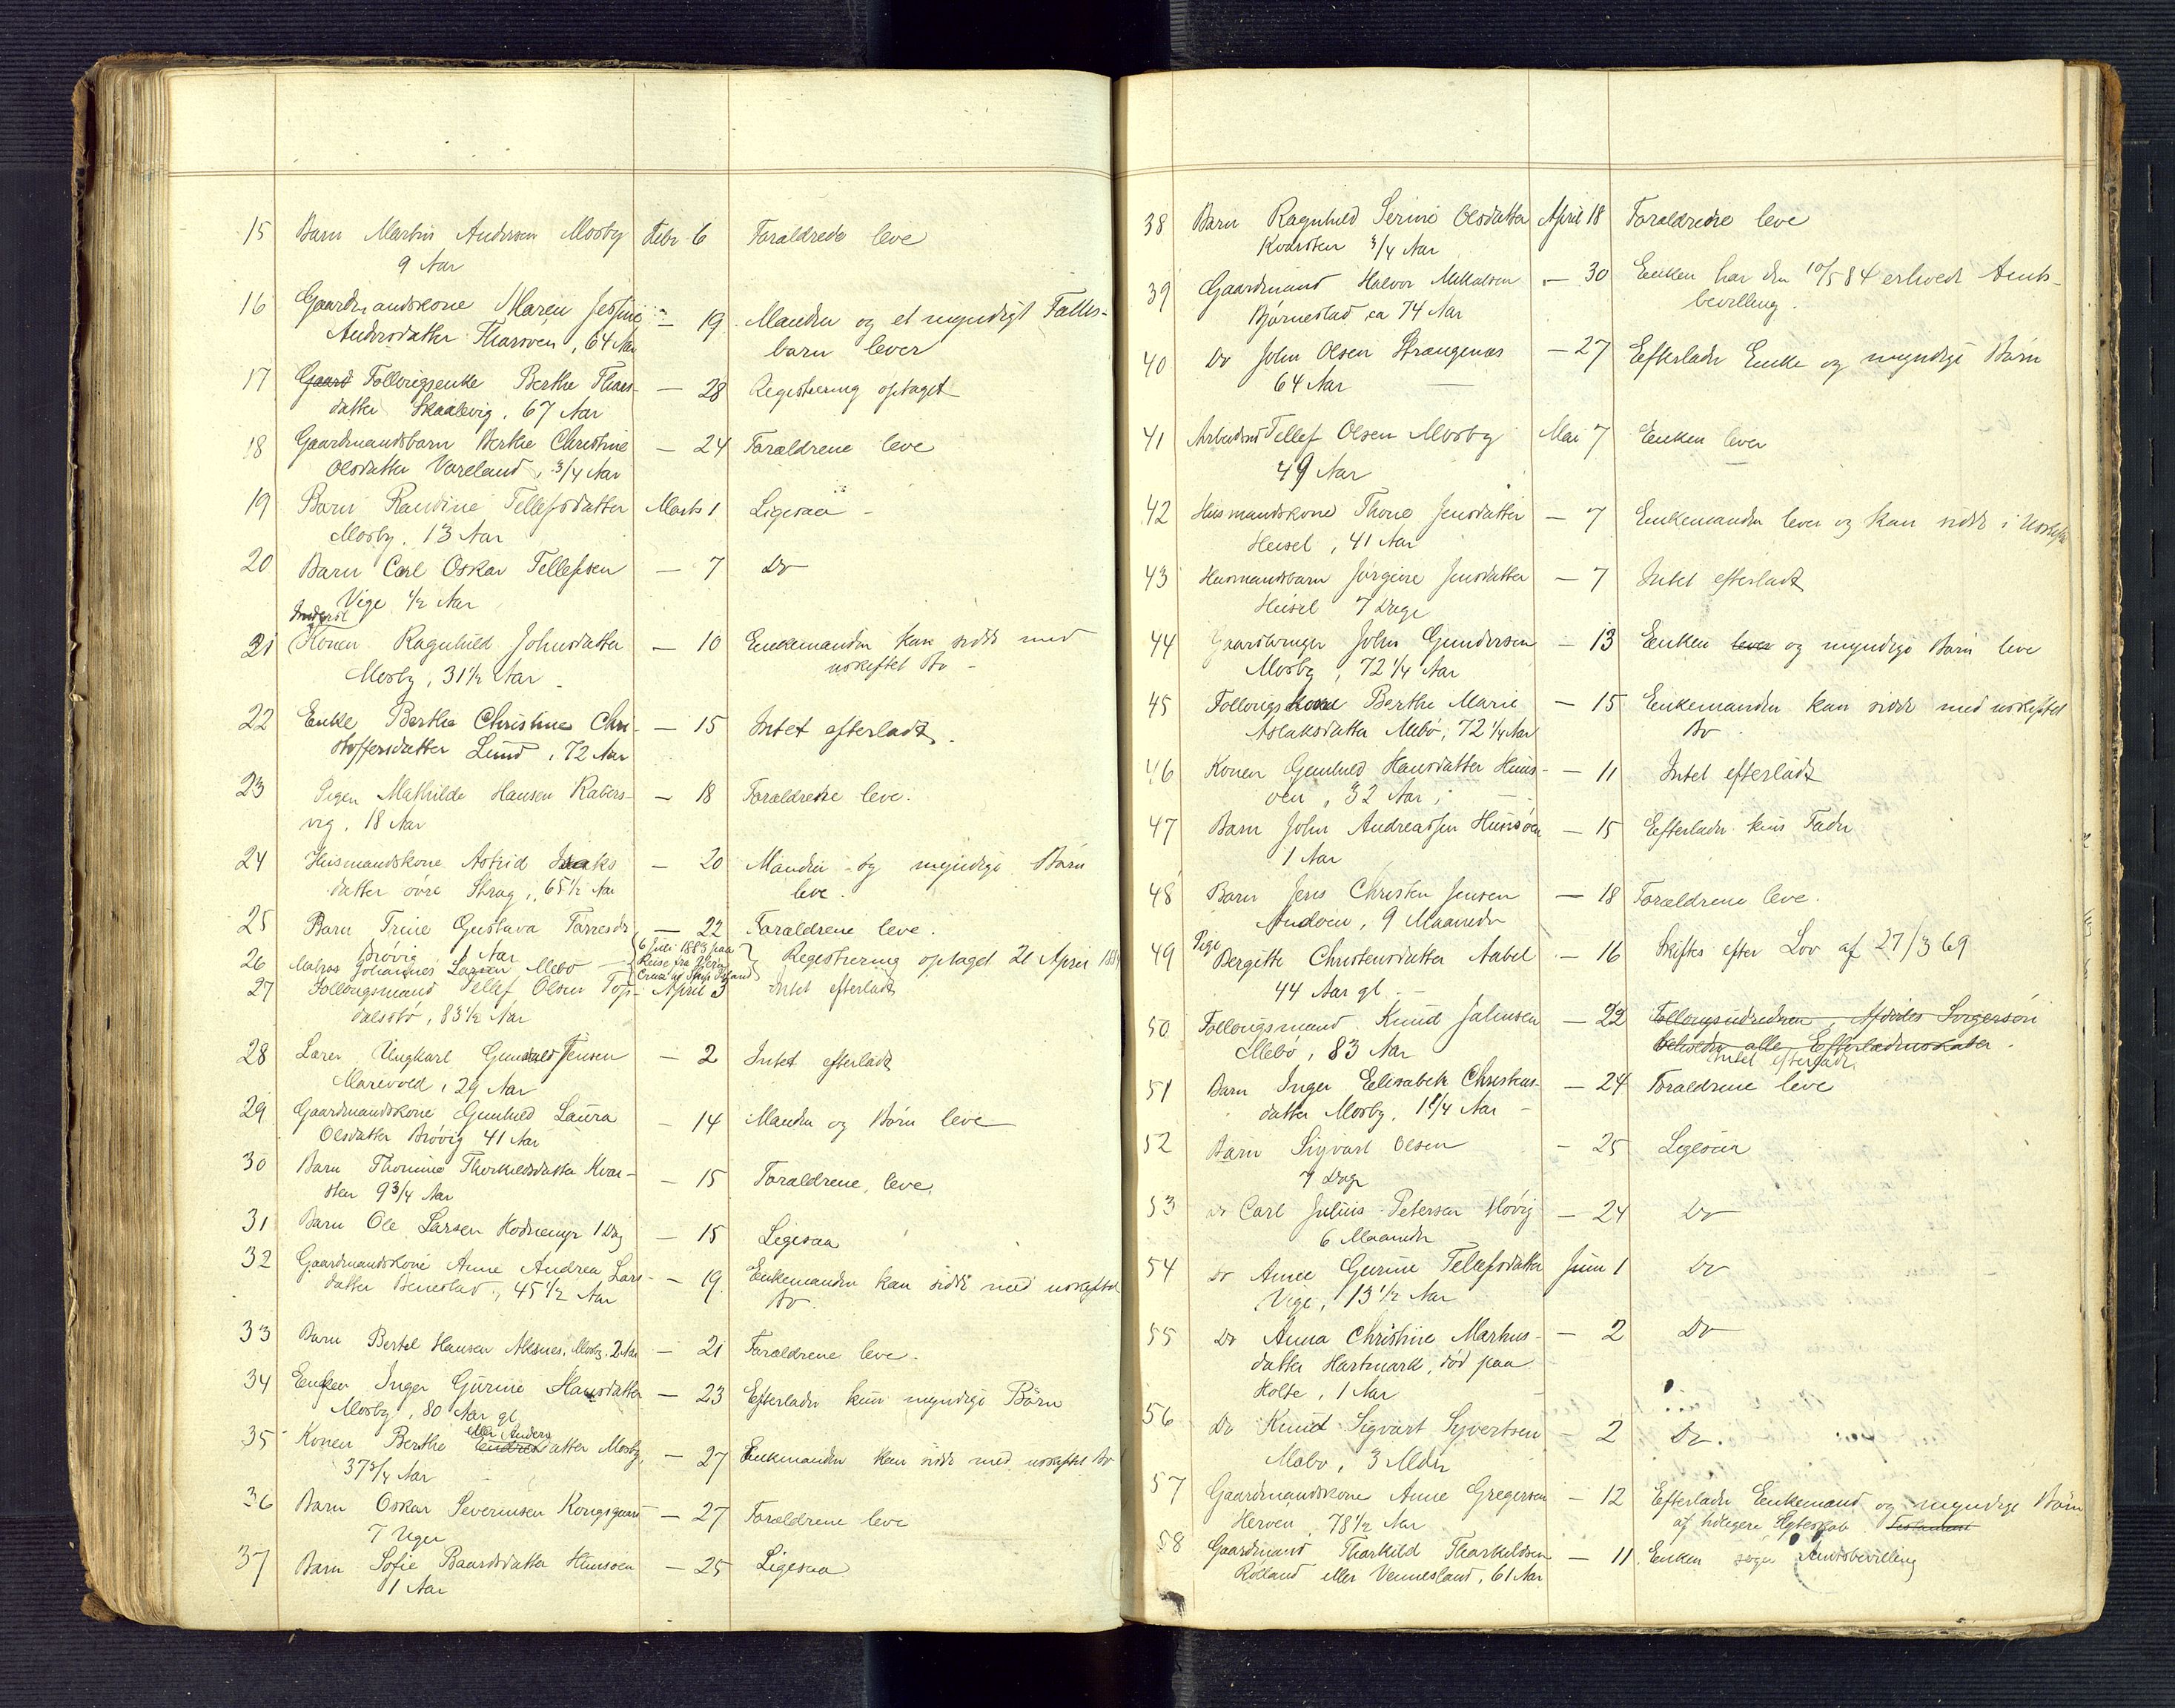 15 Barn Martin Andersen Mosby Febr 6 Forældrede leve
9 Aar
16 Gaardmandskone Maren Jesine — 19 Manden og et myndigt Fælles-
Andersdatter , 64 Aar barn lever
17 Gaard Follougsenke Berthe Thars- — 28 Registrering optaget
datter Skaalevig, 67 Aar
18 Gaardmandsbarn Berthe Christine — 24 Forældrene leve
Olsdatter Vareland, 3/4 Aar
19 Barn Randine Tellefsdatter Marts 1 Ligesaa
Mosby, 13 Aar
20 Barn Carl Oskar Tellefsen — 7 Do
Vige 1/2 Aar
21 Konen Ragnhild Johnsdatter — 10 Enkemanden kan sidde med
Mosby, 31 1/2 Aar uskiftet Bo
22 Enke Berthe Christine Chri- — 15 Intet efterladt.
stoffersdatter Lund, 72 Aar
23 Pigen Mathilde Hansen Rabers- — 18 Forældrene leve.
vig, 18 Aar
24 Husmandskone Astrid — 20 Manden og myndige Børn
datter øvre Stray, 65 1/2 Aar leve.
25 Barn Trine Gustava Tørresdr — 22 Forældrene leve.
Brøvig 1 Aar
26 Matros Johannes Larsen Mebø — 6 Juli 1883 paa
Reise fra Vera Cruz Registrering optaget 21 April
27 Follougsmand Tellef Olsen Top- April 3 Intet efterladt
dalsbø, 83 1/2 Aar
28 Lærer Ungkarl Gunvald Jensen — 2 Intet efterladt
Marivold, 29 Aar
29 Gaardmandskone Gunhild Laura — 14 Manden og Børn leve
Olsdatter Brøvig 41 Aar
30 Barn Thomine Thorkildsdatter Kvar- — 15 Forældrene leve.
sten 9 3/4 Aar
31 Barn Ole Larsen Hodnemyr 1 Dag — 15 Ligesaa
32 Gaardmandskone Anne Andrea Lars- — 19 Enkemanden kan sidde med uskiftet
datter Benestad, 45 1/2 Aar Bo
33 Barn Bertel Hansen Aksnes, Mosby. 2 Aar — 21 Forældrene leve.
34 Enken Inger Gurine Hansdatter — 23 Efterlader kun myndige Børn
Mosby, 80 Aar gl.
eller Anders
35 Konen Berthe Endresdatter Mosby, — 27 Enkemanden kan sidde med uskiftet Bo
37 3/4 Aar
36 Barn Oskar Severinsen Kongsgaard — 27 Forældrene leve
7 Uger
37 Barn Sofie Baardsdatter Hunsøen — 25 Ligesaa
1 Aar
38 Barn Ragnhild Serine Olsdatter April 18 Forældrene leve
Kvarsten 3/4 Aar
39 Gaardmand Halvor Mikalsen — 30 Enken har den 10/5 84 erhvedt Amts-
Bjørnestad, ca 74 Aar bevilling.
40 Do John Olsen Strængenæs — 27 Efterlader Enke og myndige Børn
64 Aar
41 Arbeidsm Tellef Olsen Mosby Mai 7 Enken lever
49 Aar
42 Husmandskone Thone Jensdatter — 7 Enkemanden lever og kan sidde i Uskifte
Heisel, 41 Aar
43 Husmandsbarn Jørgine Jensdatter — 7 Intet efterladt
Heisel 7 Dage
44 Gaardbruger John Gundersen — 13 Enken lever og myndige Børn leve
Mosby, 72 1/4 Aar
45 Follougskone Berthe Marie — 15 Enkemanden kan sidde med uskiftet
Aslaksdatter Mebø, 72 1/4 Aar Bo
46 Konen Gunhild Hansdatter Huns- — 11 Intet efterladt
øen, 32 Aar
47 Barn John Andreassen Hunsøen — 15 Efterlader kun Fader
1 Aar
48 Barn Jens Christen Jensen — 18 Forældrene leve.
Andøen, 9 Maaneder
49 Pige Bergitte Christensdatter Aabel — 16 Skiftes efter Lov af 27/3 69
44 Aar gl.
50 Follougsmand Knud Salvesen — 22 Follougsudrederen
Mebø, 83 Aar beholder alle Efterladenskaber.
Intet efterladt.
51 Barn Inger Elisabeth Christens- — 24 Forældrene leve
datter Mosby, 1 1/4 Aar
52 Barn Sigvart Olsen — 25 Ligesaa
7 Dage
53 Do Carl Julius Petersen Høvig — 24 Do
6 Maaneder
54 Do Anne Gurine Tellefsdatter Juni 1 Do
Vige, 13 1/2 Aar
55 Do Anna Christine Markus- — 2 Do
datter Hartmark, død paa
Holte, 1 Aar
56 Do Knud Sigvart Syvertsen — 2 Do.
Mæbø, 3 Mdr
57 Gaardmandskone Anne Gregersen — 12 Efterlader Enkemand og myndige Børn
Herven, 78 1/2 Aar af tidligere Egteskab. Testament
58 Gaardmand Tharkild Tharkildsen — 11 Enken søger Amtsbevilling
Rølland eller Vennesland, 61 Aar